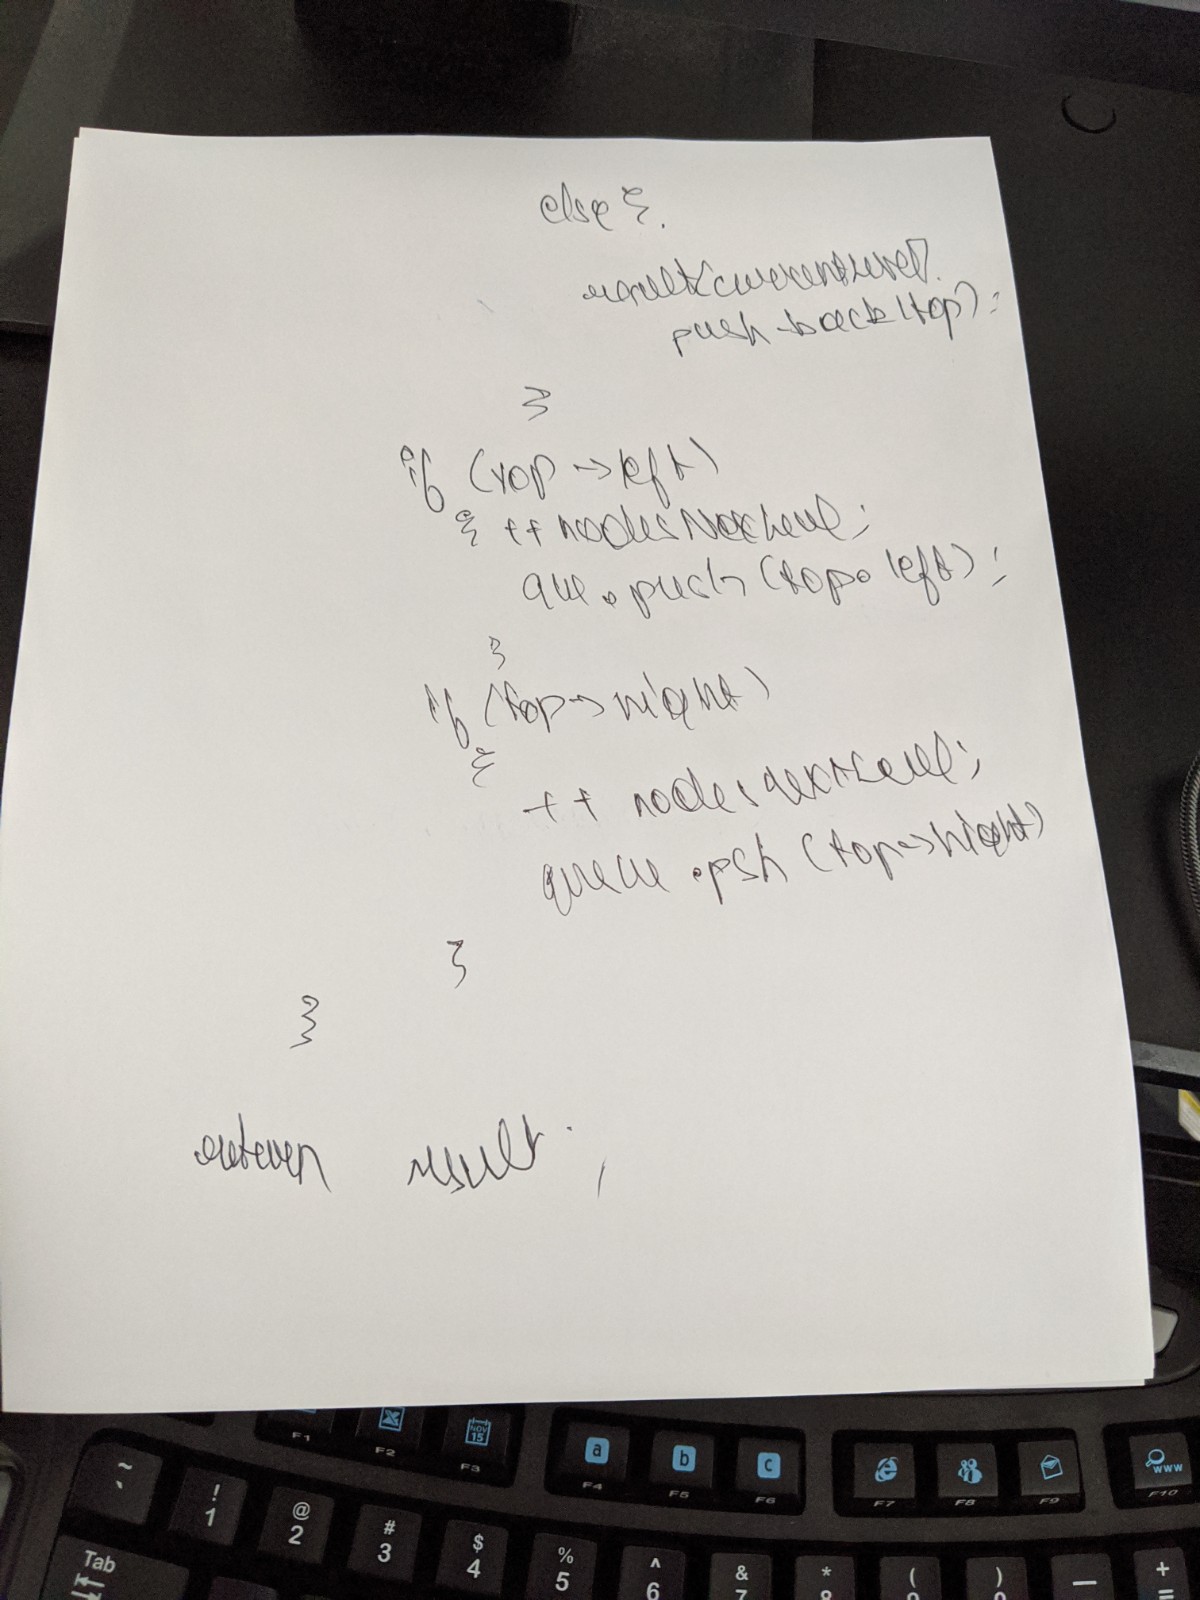 else {.
result[currentLevel].
push-back(top);
}
if (top->left)
{ ++ nodesNextLevel;
que.push (top. left);
}
if (top->right)
{
++ nodesnextLevel;
queue .psh (top->right)
}
}
return result;
F1 F2 NOV 15 F3 a F4 b F5 c F6 F7 F8 F9 WWW F10
~ ` ! 1 @ 2 # 3 $ 4 % 5 ^ 6 & 7 * 8 ( ) — + =
Tab